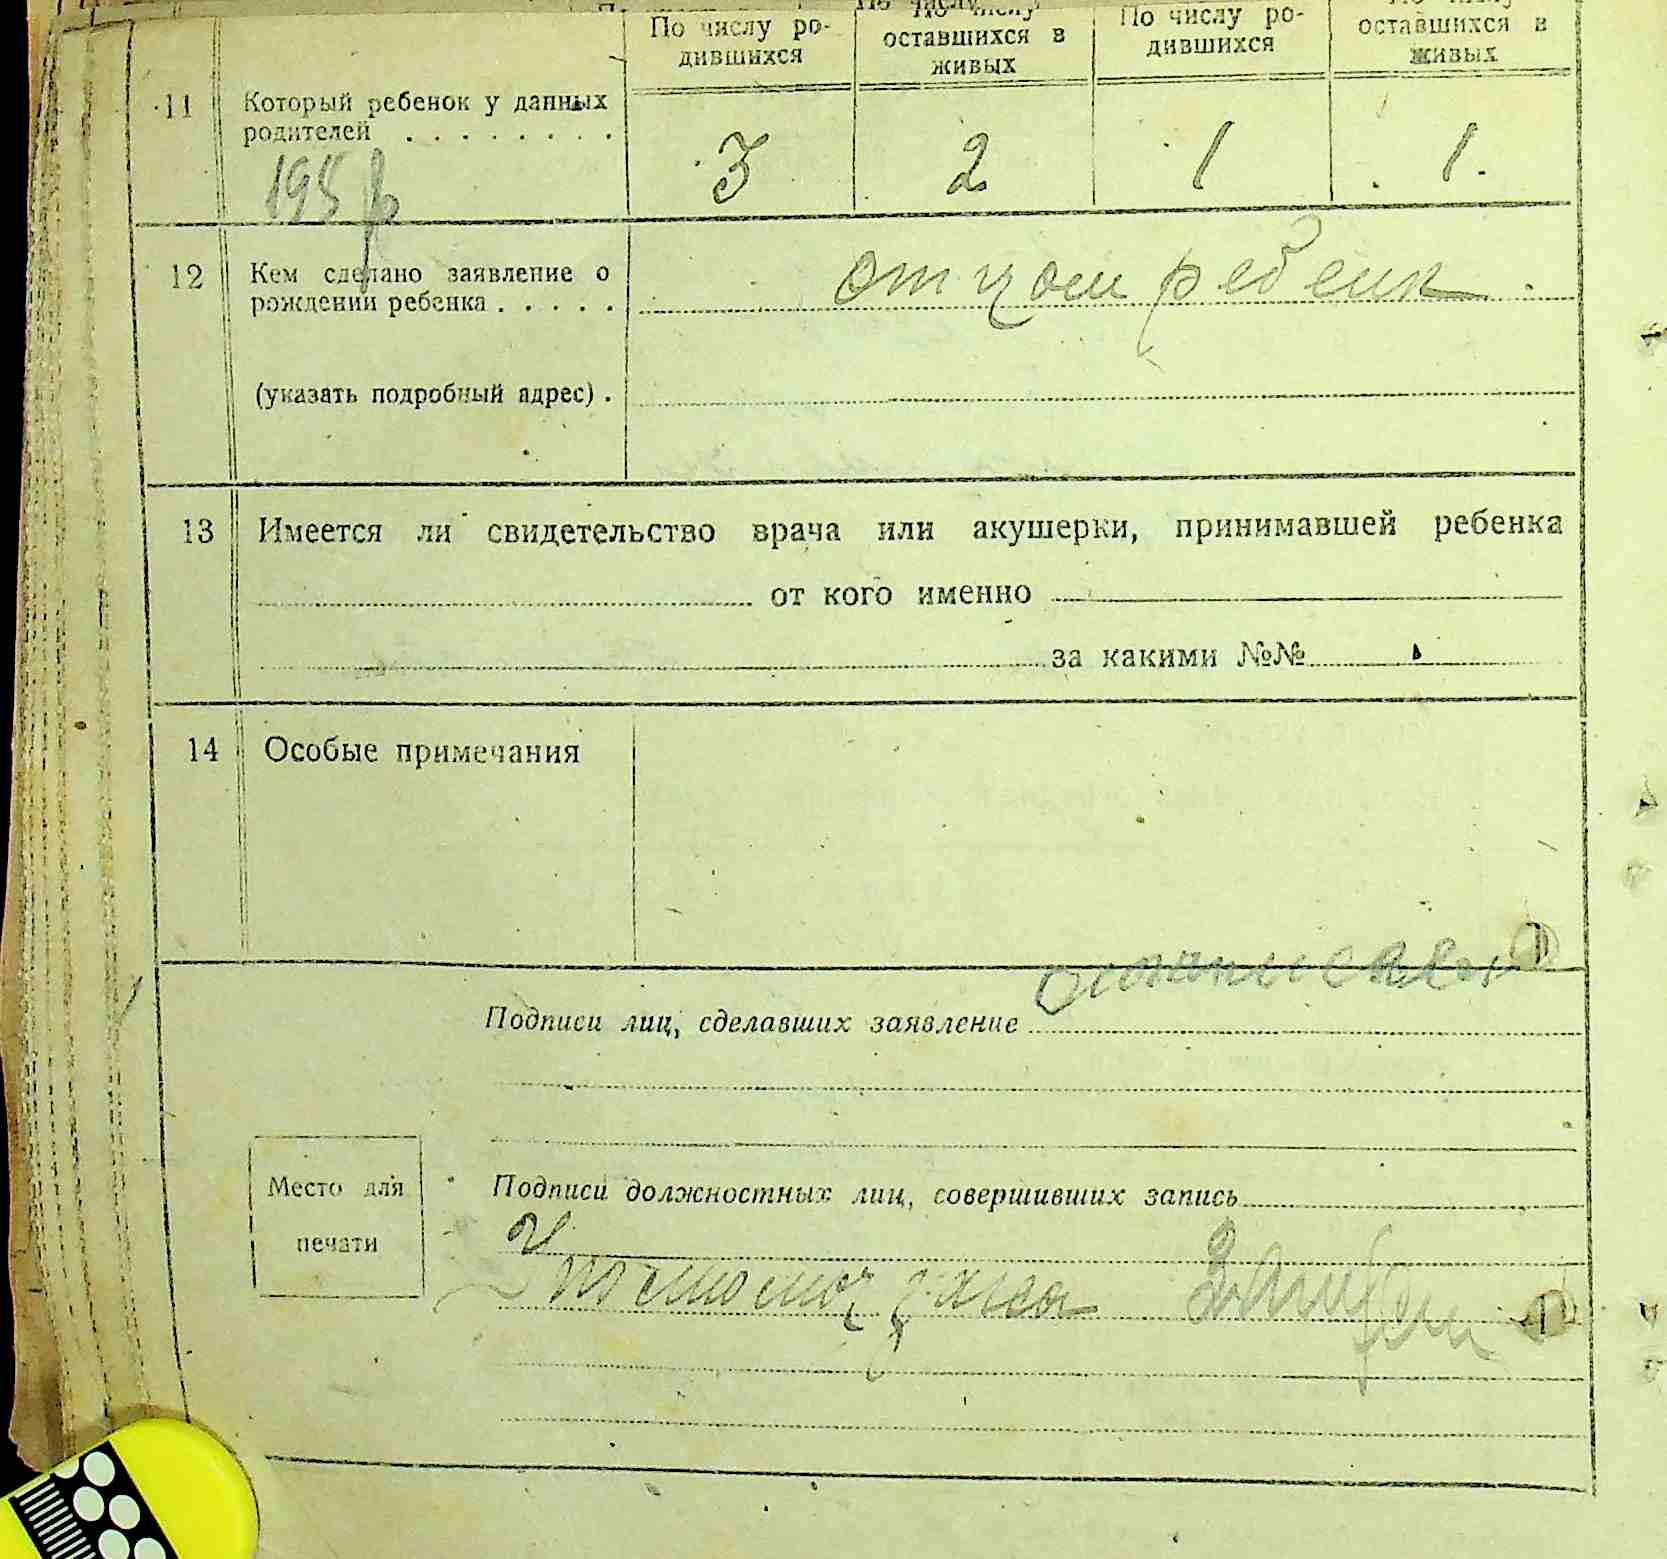 По числу ро-
дившихся
По числу
оставшихся в
живых
По числу ро-
дившихся
По числу
оставшихся в
живых
11
Который ребенок у данных
родителей . . . . . . . .
3
2
1
1.
12
Кем сделано заявление о
рождении ребенка . . . . .
отцом ребенк
(указать подробный адрес) .
13
Имеется ли свидетельство врача или акушерки, принимавшей ребенка
от кого именно
за какими №№
14
Особые примечания
Подписи лиц, сделавших заявление
Место для
печати
Подписи должностных лиц, совершивших запись